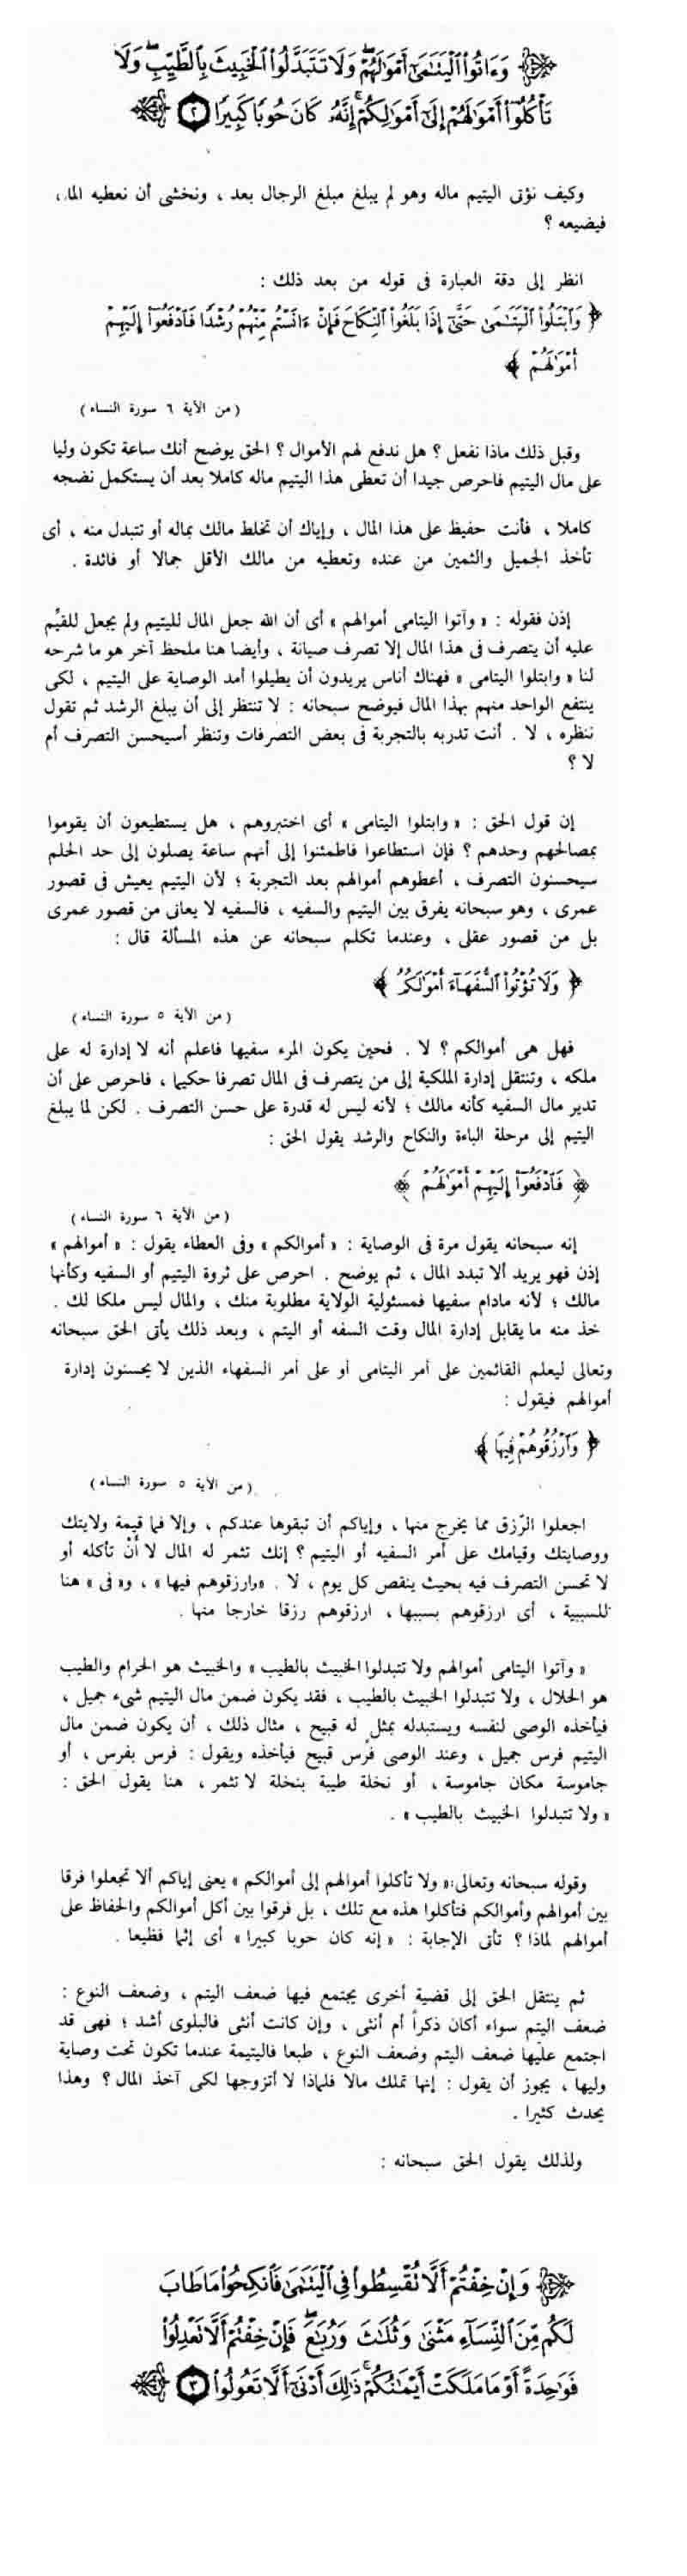 وَءَاتُوا۟ ٱلْيَتَـٰمَىٰٓ أَمْوَٰلَهُمْ ۖ وَلَا تَتَبَدَّلُوا۟ ٱلْخَبِيثَ بِٱلطَّيِّبِ ۖ وَلَا
تَأْكُلُوٓا۟ أَمْوَٰلَهُمْ إِلَىٰٓ أَمْوَٰلِكُمْ ۚ إِنَّهُۥ كَانَ حُوبًا كَبِيرًا ٢
وكيف نؤتى اليتيم ماله وهو لم يبلغ مبلغ الرجال بعد ، ونخشى أن نعطيه المال ،
فيضيعه ؟
انظر إلى دقة العبارة فى قوله من بعد ذلك :
﴿ وَٱبْتَلُوا۟ ٱلْيَتَـٰمَىٰ حَتَّىٰٓ إِذَا بَلَغُوا۟ ٱلنِّكَاحَ فَإِنْ ءَانَسْتُم مِّنْهُمْ رُشْدًا فَٱدْفَعُوٓا۟ إِلَيْهِمْ
أَمْوَٰلَهُمْ ﴾
( من الآية ٦ سورة النساء )
وقبل ذلك ماذا نفعل ؟ هل ندفع لهم الأموال ؟ الحق يوضح أنك ساعة تكون وليا
على مال اليتيم فاحرص جيدا أن تعطى هذا اليتيم ماله كاملا بعد أن يستكمل نضجه
كاملا ، فأنت حفيظ على هذا المال ، وإياك أن تخلط مالك بماله أو تتبدل منه ، أى
تأخذ الجميل والثمين من عنده وتعطيه من مالك الأقل جمالا أو فائدة .
إذن فقوله : « وآتوا اليتامى أموالهم » أى أن الله جعل المال لليتيم ولم يجعل للقيِّم
عليه أن يتصرف فى هذا المال إلا تصرف صيانة ، وأيضا هنا ملحظ آخر هو ما شرحه
لنا « وابتلوا اليتامى » فهناك أناس يريدون أن يطيلوا أمد الوصاية على اليتيم ، لكى
ينتفع الواحد منهم بهذا المال فيوضح سبحانه : لا تنتظر إلى أن يبلغ الرشد ثم تقول
ننظره ، لا . أنت تدربه بالتجربة فى بعض التصرفات وتنظر أسيحسن التصرف أم
لا ؟
إن قول الحق : « وابتلوا اليتامى » أى اختبروهم ، هل يستطيعون أن يقوموا
بمصالحهم وحدهم ؟ فإن استطاعوا فاطمئنوا إلى أنهم ساعة يصلون إلى حد الحلم
سيحسنون التصرف ، أعطوهم أموالهم بعد التجربة ؛ لأن اليتيم يعيش فى قصور
عمرى ، وهو سبحانه يفرق بين اليتيم والسفيه ، فالسفيه لا يعانى من قصور عمرى
بل من قصور عقلى ، وعندما تكلم سبحانه عن هذه المسألة قال :
﴿ وَلَا تُؤْتُوا۟ ٱلسُّفَهَآءَ أَمْوَٰلَكُمُ ﴾
( من الآية ٥ سورة النساء )
فهل هى أموالكم ؟ لا . فحين يكون المرء سفيها فاعلم أنه لا إدارة له على
ملكه ، وتنتقل إدارة الملكية إلى من يتصرف فى المال تصرفا حكيما ، فاحرص على أن
تدير مال السفيه كأنه مالك ؛ لأنه ليس له قدرة على حسن التصرف . لكن لما يبلغ
اليتيم إلى مرحلة الباءة والنكاح والرشد يقول الحق :
﴿ فَٱدْفَعُوٓا۟ إِلَيْهِمْ أَمْوَٰلَهُمْ ﴾
( من الآية ٦ سورة النساء )
إنه سبحانه يقول مرة فى الوصاية : « أموالكم » وفى العطاء يقول : « أموالهم »
إذن فهو يريد ألا تبدد المال ، ثم يوضح . احرص على ثروة اليتيم أو السفيه وكأنها
مالك ؛ لأنه مادام سفيها فمسئولية الولاية مطلوبة منك ، والمال ليس ملكا لك .
خذ منه ما يقابل إدارة المال وقت السفه أو اليتم ، وبعد ذلك يأتى الحق سبحانه
وتعالى ليعلم القائمين على أمر اليتامى أو على أمر السفهاء الذين لا يحسنون إدارة
أموالهم فيقول :
﴿ وَٱرْزُقُوهُمْ فِيهَا ﴾
( من الآية ٥ سورة النساء )
اجعلوا الرّزق مما يخرج منها ، وإياكم أن تبقوها عندكم ، وإلا فما قيمة ولايتك
ووصايتك وقيامك على أمر السفيه أو اليتيم ؟ إنك تثمر له المال لا أنْ تأكله أو
لا تحسن التصرف فيه بحيث ينقص كل يوم ، لا . «وارزقوهم فيها» ، و« فى » هنا
للسببية ، أى ارزقوهم بسببها ، ارزقوهم رزقا خارجا منها .
« وآتوا اليتامى أموالهم ولا تتبدلوا الخبيث بالطيب » والخبيث هو الحرام والطيب
هو الحلال ، ولا تتبدلوا الخبيث بالطيب ، فقد يكون ضمن مال اليتيم شىء جميل ،
فيأخذه الوصى لنفسه ويستبدله بمثل له قبيح ، مثال ذلك ، أن يكون ضمن مال
اليتيم فرس جميل ، وعند الوصى فرس قبيح فيأخذه ويقول : فرس بفرس ، أو
جاموسة مكان جاموسة ، أو نخلة طيبة بنخلة لا تثمر ، هنا يقول الحق :
« ولا تتبدلوا الخبيث بالطيب » .
وقوله سبحانه وتعالى:« ولا تأكلوا أموالهم إلى أموالكم » يعنى إياكم ألا تجعلوا فرقا
بين أموالهم وأموالكم فتأكلوا هذه مع تلك ، بل فرقوا بين أكل أموالكم والحفاظ على
أموالهم لماذا ؟ تأتى الإجابة : « إنه كان حوبا كبيرا » أى إثما فظيعا .
ثم ينتقل الحق إلى قضية أخرى يجتمع فيها ضعف اليتم ، وضعف النوع :
ضعف اليتم سواء أكان ذكراً أم أنثى ، وإن كانت أنثى فالبلوى أشد ؛ فهى قد
اجتمع عليها ضعف اليتم وضعف النوع ، طبعا فاليتيمة عندما تكون تحت وصاية
وليها ، يجوز أن يقول : إنها تملك مالا فلماذا لا أتزوجها لكى آخذ المال ؟ وهذا
يحدث كثيرا .
ولذلك يقول الحق سبحانه :
وَإِنْ خِفْتُمْ أَلَّا تُقْسِطُوا۟ فِى ٱلْيَتَـٰمَىٰ فَٱنكِحُوا۟ مَا طَابَ
لَكُم مِّنَ ٱلنِّسَآءِ مَثْنَىٰ وَثُلَـٰثَ وَرُبَـٰعَ ۖ فَإِنْ خِفْتُمْ أَلَّا تَعْدِلُوا۟
فَوَٰحِدَةً أَوْ مَا مَلَكَتْ أَيْمَـٰنُكُمْ ۚ ذَٰلِكَ أَدْنَىٰٓ أَلَّا تَعُولُوا۟ ٣